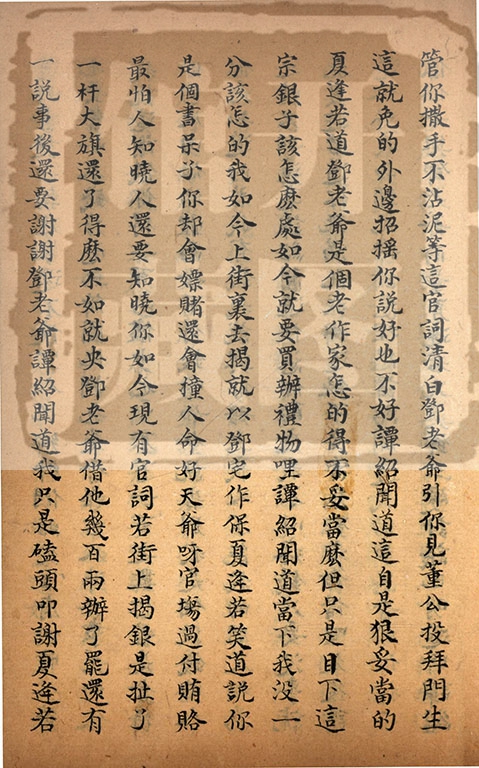 管你撒手不沾泥等這官詞清白鄧老爺引你見董公投拜門生
這就免的外邊招揺你說好也不好譚紹聞道這自是狠妥當的
夏逢若道鄧老爺是個老作家怎的得不妥當麽但只是目下這
宗銀子該怎麽處如今就要買辦禮物哩譚紹聞道當下我没一
分該怎的我如今上街裏去揭就以鄧宅作保夏逢若笑道説你
是個書呆子你却會嫖賭還會撞人命好天爺呀官塲過付賄賂
最怕人知曉人還要知曉你如今現有官詞若街上揭銀是扯了
一杆大旗還了得麽不如就央鄧老爺借他幾百兩辦了罷還有
一説事後還要謝謝鄧老爺譚紹聞道我只是磕頭叩謝夏逢若